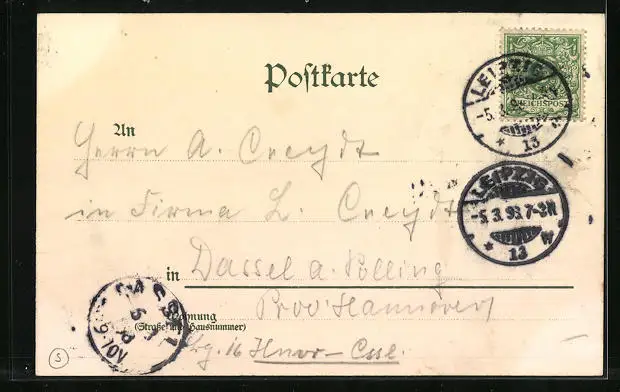 Postkarte
REICHSPOST
LEIPZIG
-5. 3.
* 13
An
Herrn A. Creydt
LEIPZIG
-5. 3. 98. 7-8N
* 13
in Firma L. Creydt
in Dassel a. Solling
Prov Hannover
Wohnung
(Straße und Hausnummer)
16 Hnvr-Cssl.
DASSEL
S